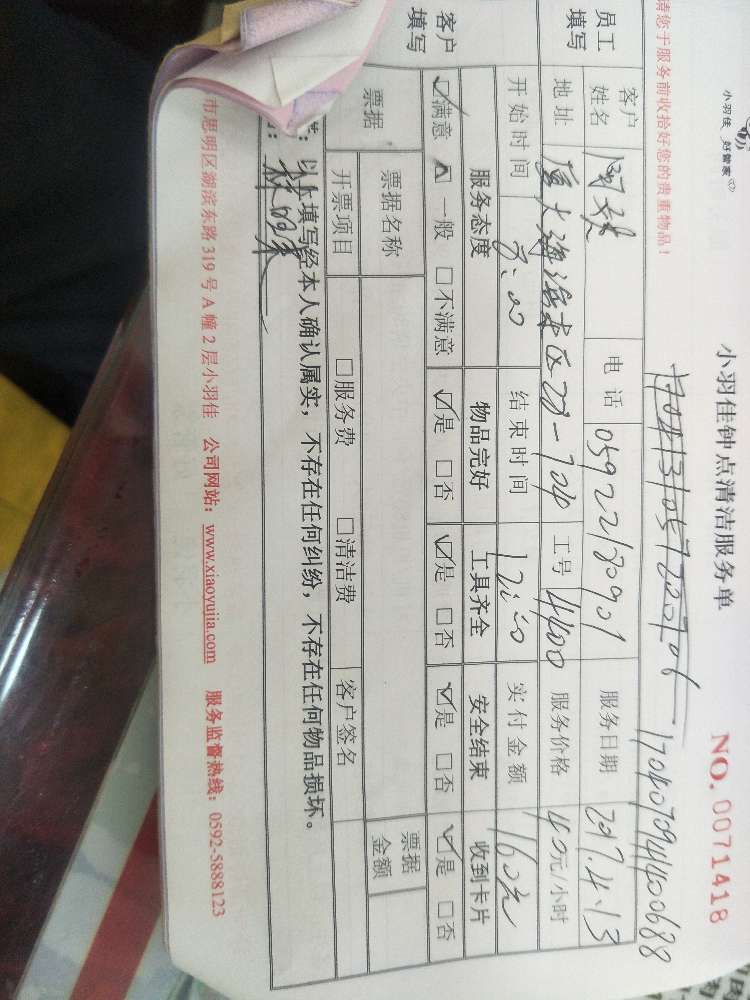 小羽佳 好管家
小羽佳钟点清洁服务单
NO. 0071418
请您于服务前收拾好您的贵重物品!
170407094400688
员工填写
客户姓名 电话 05922180901 服务日期 2017.4.13
地址 厦大海滨东区28-704 工号 4400 服务价格 40元/小时
开始时间 8:00 结束时间 12:00 实付金额 160元
客户填写
服务态度 物品完好 工具齐全 安全结束 收到卡片
☑满意 ☑一般 □不满意 ☑是 □否 ☑是 □否 ☑是 □否 ☑是 □否
票据 票据名称 票据金额
开票项目 □服务费 □清洁费 客户签名
以上填写经本人确认属实,不存在任何纠纷,不存在任何物品损坏。
市思明区湖滨东路 319 号 A 幢 2 层小羽佳 公司网站:www.xiaoyujia.com 服务监督热线:0592-5888123